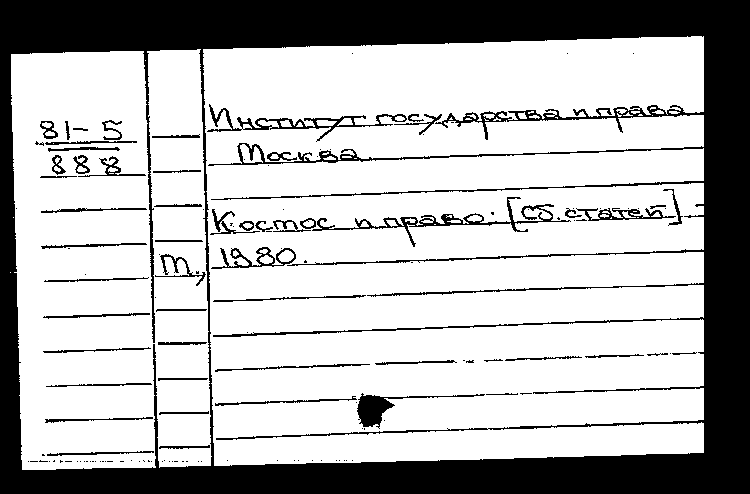 81-5
888
Институт государства и права
Москва.
Космос и право: [Сб. статей] -
М., 1980.